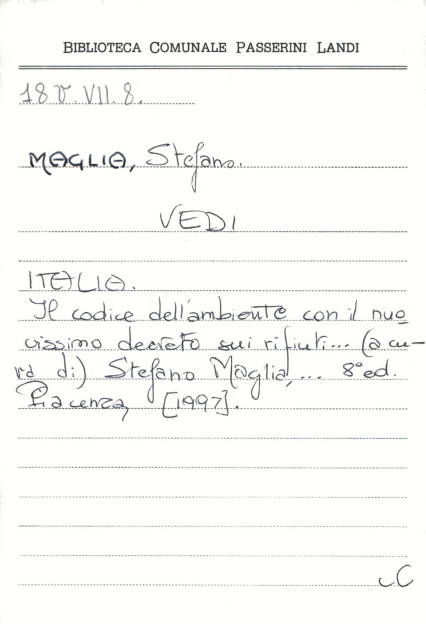 BIBLIOTECA COMUNALE PASSERINI LANDI
18 V.VII.8.
MAGLIA, Stefano.
VEDI
ITALIA.
Il codice dell'ambiente con il nuo
vissimo decreto sui rifiuti... (a cu-
ra di) Stefano Maglia, ... 8° ed.
Piacenza, [1997].